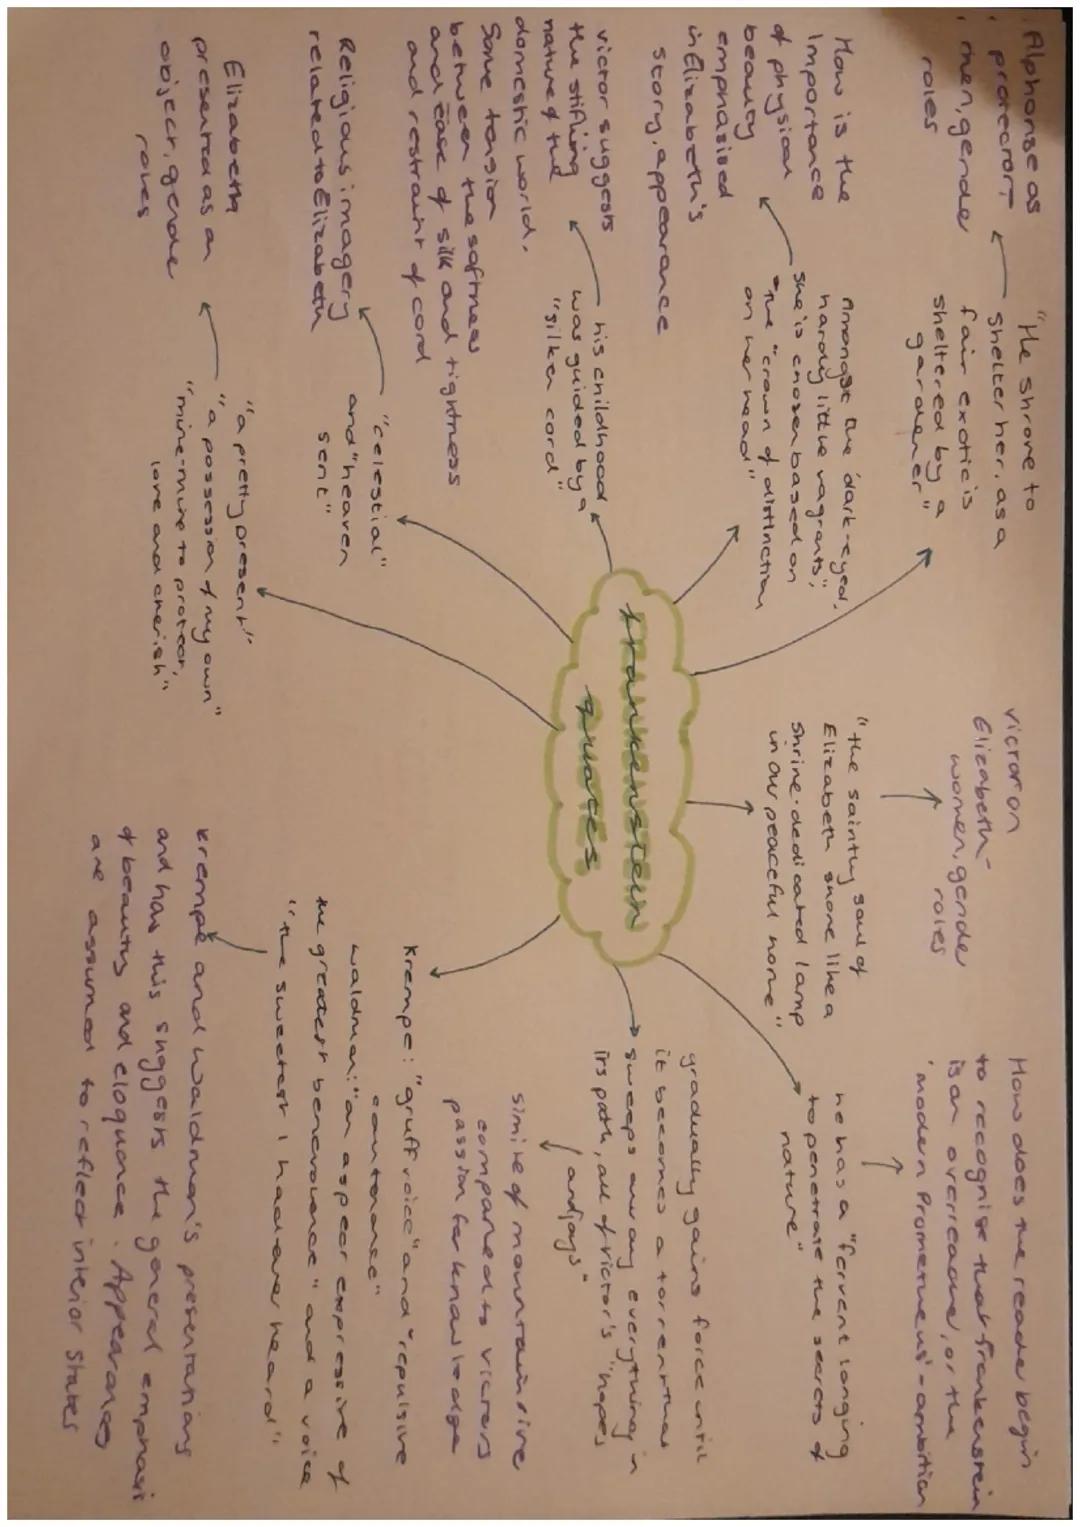 Alphonse as
protecort
men, gender
roles
"He shrove to
shelter her, as a
fair exotic is
sheltered by a
gardener"
How is the
importance
of physical
beauty
emphasised
in Elizabeth's
story, appearance
Amongst the 'dark-eyed,
hardy little vagrants',
she is chosen based on
the "crown of distinction
on her head"
victor suggests
the stifling
nature of the
domestic world.
Some tension
between the softness
and ease of silk and tightness
and restraint of cord
his childhood
was guided by a
"silken cord"
Religious imagery
related to Elizabeth
"celestial"
and "heaven
sent"
Elizabeth
presented as an
object, gender
roles
"a pretty present"
"a possession of my own"
"mine-mine to protect,
love and cherish"
Frankenstein
quotes
victor on
Elizabeth-
women, gender
roles
"the saintly soul of
Elizabeth shone like a
shrine-dedicated lamp
in our peaceful home"
How does the reader begin
to recognise that frankenstein
is an overreacher, or the
'modern Prometheus'-ambition
he has a "fervent longing
to penetrate the secrets of
nature"
gradually gains force until
it becomes a torrent that
sweeps away everything in
its path, all of victor's "hopes
and joys"
simile of mountain rive
compared to victors
passion for knowledge
Krempe: "gruff voice" and "repulsive
countenance"
waldman: "an aspect expressive of
the greatest benevolence" and a voice
"the sweetest I had ever heard"
Krempe and waldman's presentations
and how this suggests the general emphasis
of beauty and eloquence. Appearances
are assumed to reflect interior states